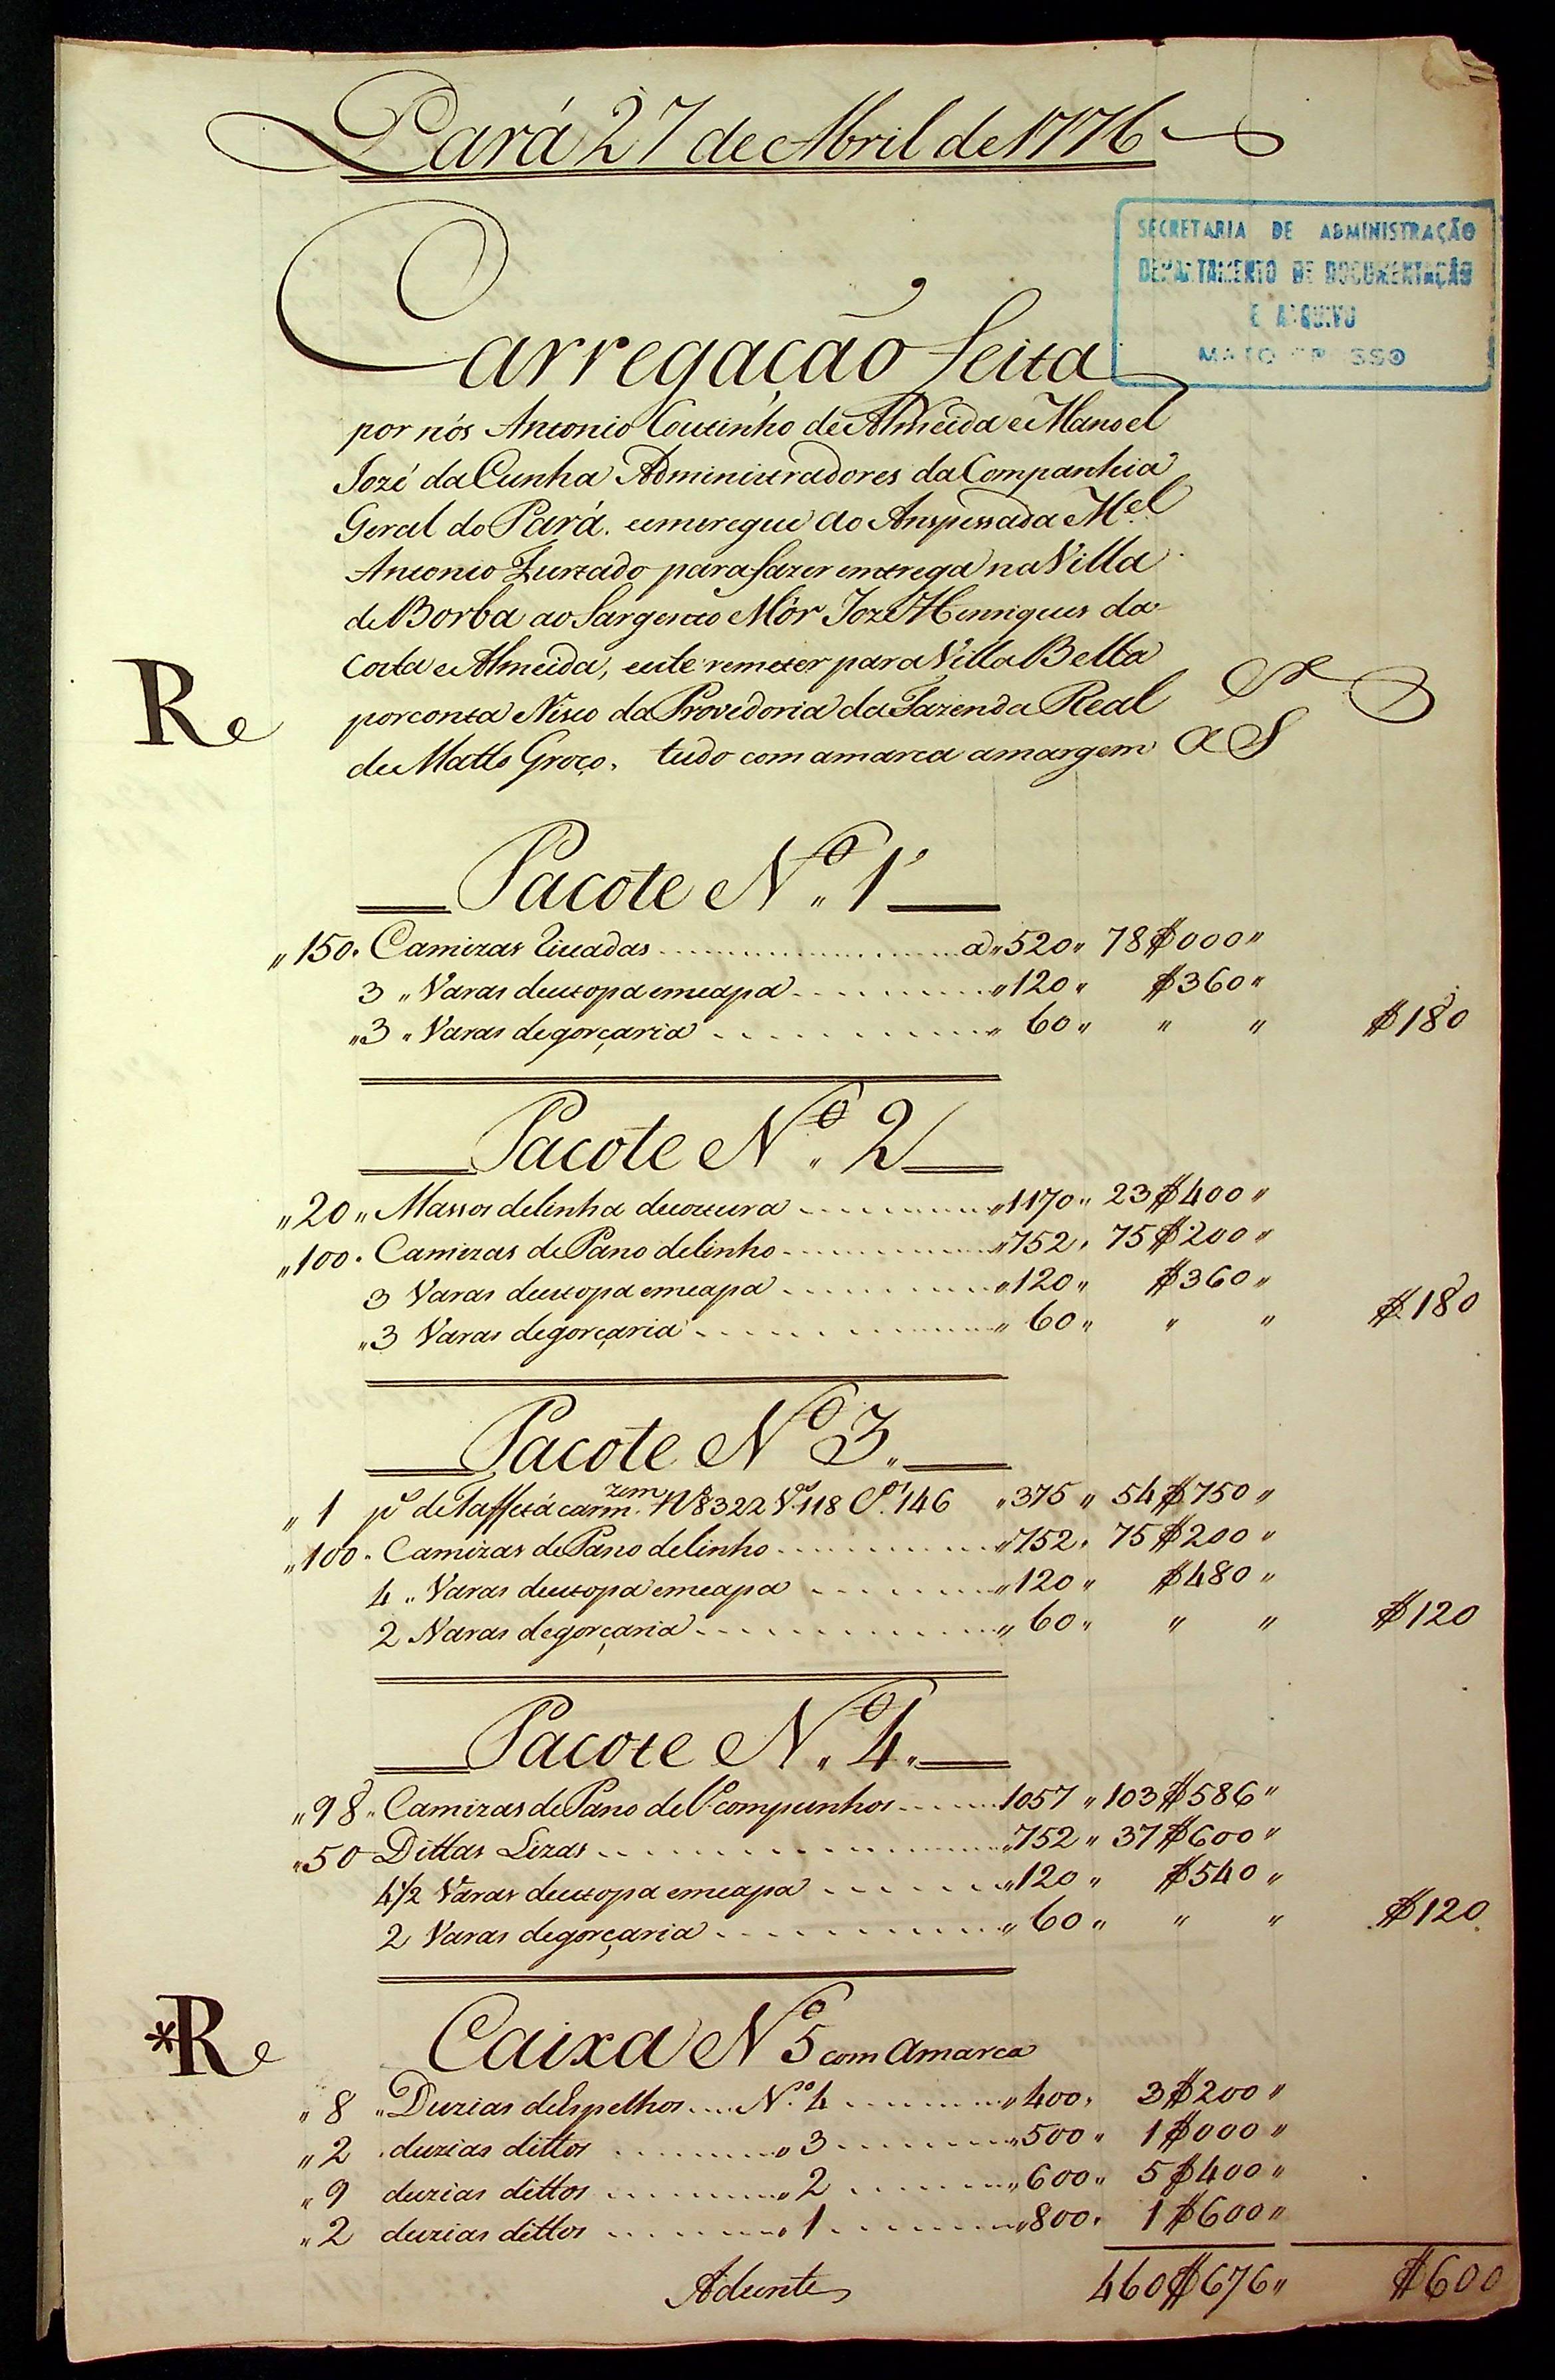 Pará 27 de Abril de 1776
SECRETARIA DE ADMINISTRAÇÃO
DEPARTAMENTO DE DOCUMENTAÇÃO
E ARQUIVO
MATO GROSSO
Carregação feita
por nós Antonio Coutinho de Almeida e Manoel
Jozé da Cunha Administradores da Companhia
Geral do Pará. e emtregue ao Anspessada M.el
Antonio Furtado para fazer emtrega na Villa
de Borba ao Sargento Mór Jozé Henriques da
Costa e Almeida, e este remeter para Villa Bella
por conta e Risco da Provedoria da Fazenda Real
de Matto Groço. tudo com a marca a margem a S
Re
Pacote N.º 1
"150. Camizas Riscadas a"520" 78$000"
3 " Varas de estopa em capa "120" $360"
"3 " Varas de gorçaria " 60" " " $180
Pacote N.º 2
"20 " Massos de linha de costura "1170" 23$400"
"100. Camizas de Pano de linho "752" 75$200"
3 Varas de estopa em capa "120" $360"
"3 Varas de gorçaria " 60" " " $180
Pacote N.º 3
" 1 p.º de Taffetá carm.rzm Nº 8322 V.os 118 C.os 146 "375" 54$750"
"100. Camizas de Pano de linho "752" 75$200"
4 " Varas de estopa em capa "120" $480"
2 Varas de gorçaria " 60" " " $120
Pacote N.º 4
"98" Camizas de Pano de l.º com punhos 1057 " 103$586"
"50 Dittas Lizas "752" 37$600"
4 1/2 Varas de estopa em capa "120" $540"
2 Varas de gorçaria " 60" " " $120
*Re
Caixa Nº 5 com a marca
" 8 " Duzias de Espelhos N.º 4 "400" 3$200"
" 2 duzias dittos " 3 "500" 1$000"
" 9 duzias dittos " 2 "600" 5$400"
" 2 duzias dittos " 1 "800" 1$600"
Adiante 460$676" $600